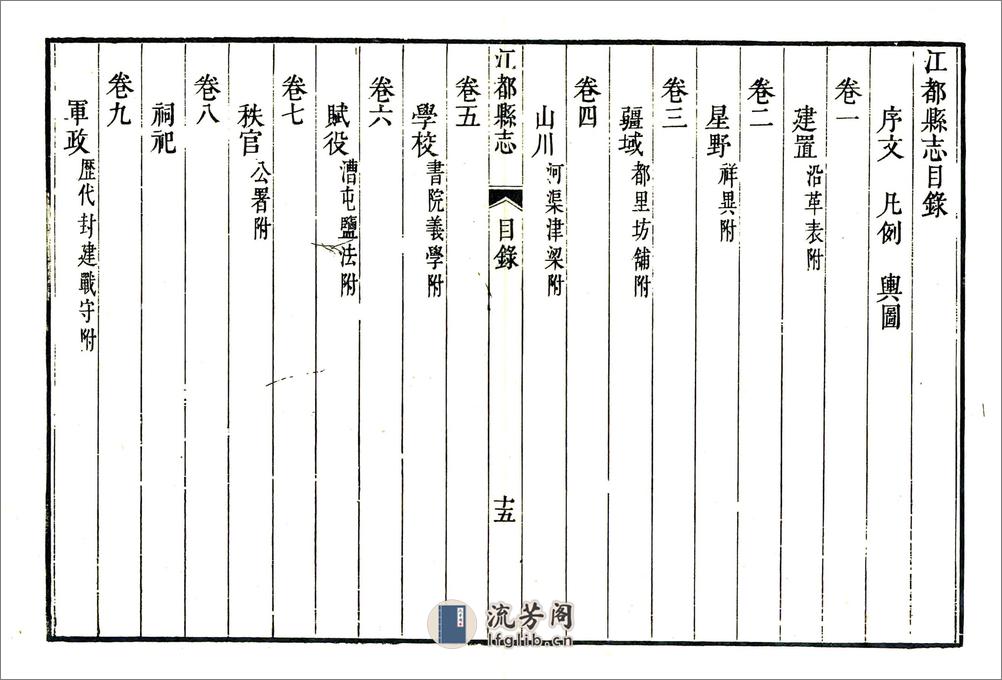 江都縣志目錄
序文 凡例 輿圖
卷一
建置 沿革表附
卷二
星野 祥異附
卷三
疆域 都里坊舖附
卷四
山川 河渠津梁附
江都縣志 目錄 十五
卷五
學校 書院義學附
卷六
賦役 漕屯鹽法附
卷七
秩官 公署附
卷八
祠祀
卷九
軍政 歷代封建戰守附
流芳阁
lfglib.cn